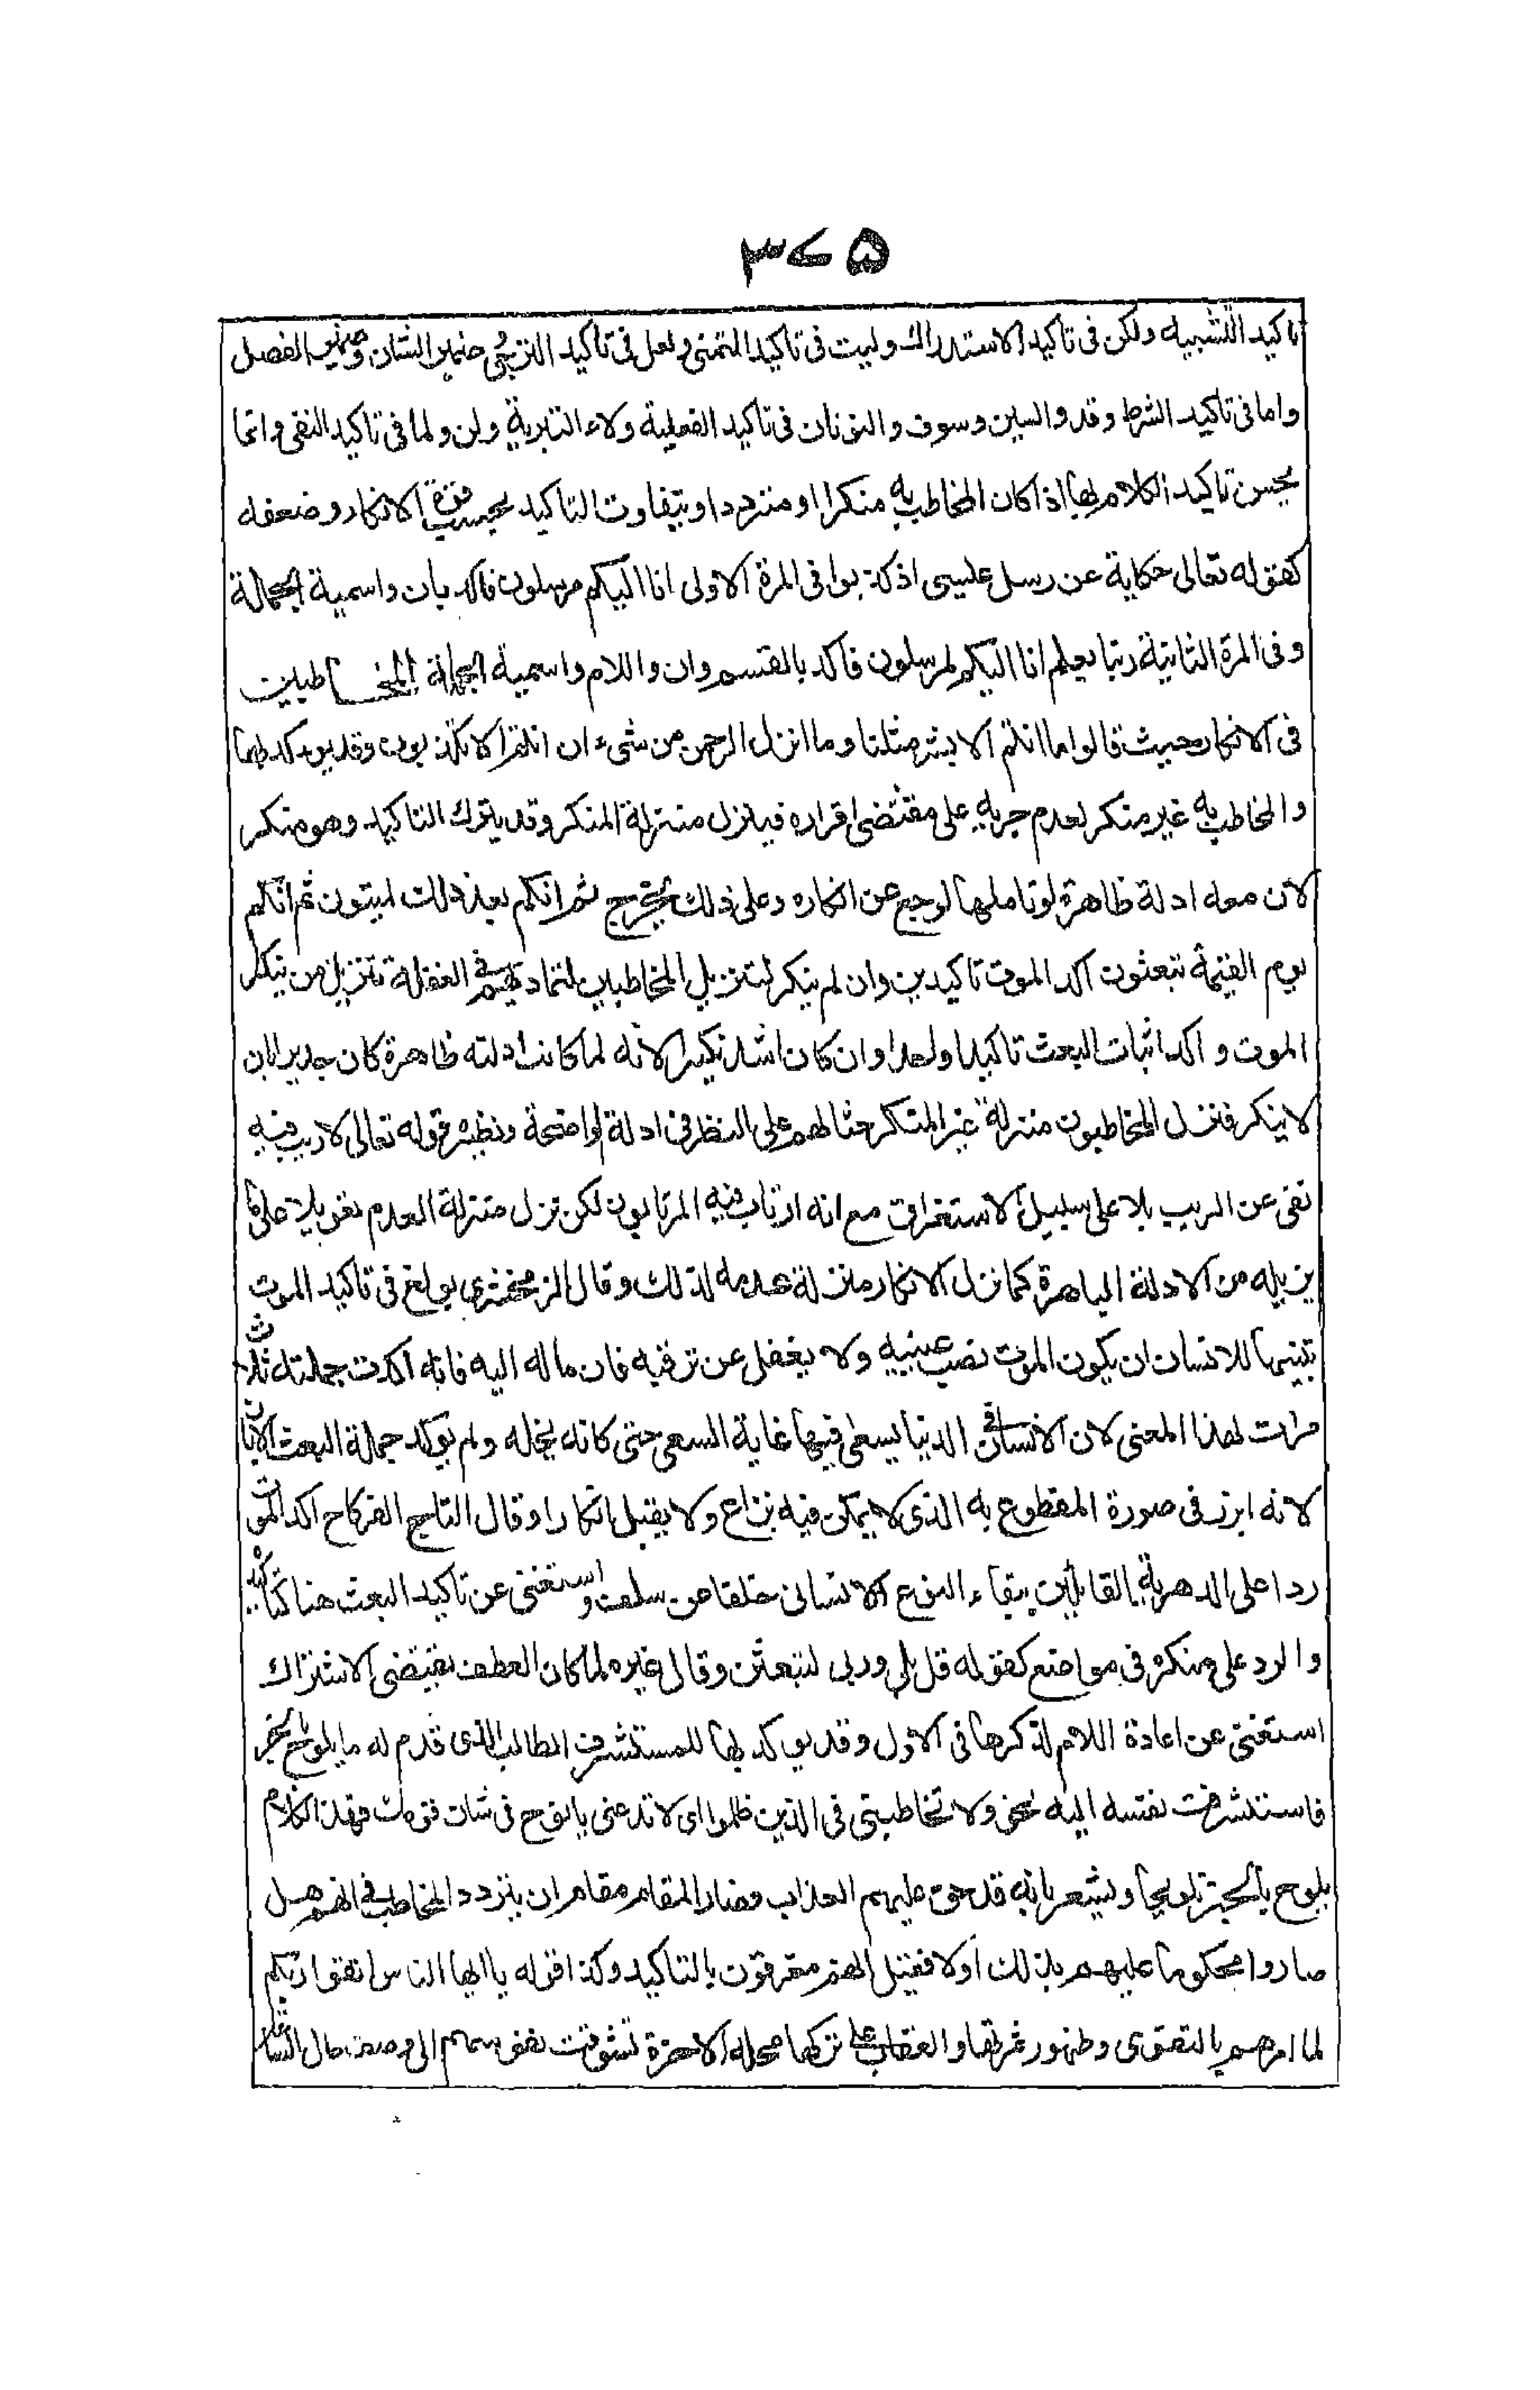 ٣٧٥
تاكيد التشبيه ولكن فى تاكيد الاستدراك وليت فى تاكيد التمنى ولعل فى تاكيد الترجى وضمير الشان وضمير الفصل
واما فى تاكيد الشرط وقد والسين وسوف والنونان فى تاكيد الفعلية ولاء التبرية ولن ولما فى تاكيد النفى وانما
يحسن تاكيد الكلام بها اذا كان المخاطب به منكرا او مترددا ويتفاوت التاكيد بحسب قوة الانكار وضعفه
كقوله تعالى حكاية عن رسل عيسى اذ كذبوا فى المرة الاولى انا اليكم مرسلون فاكد بان واسمية الجملة
وفى المرة الثانية ربنا يعلم انا اليكم لمرسلون فاكد بالقسم وان واللام واسمية الجملة لمبالغة المخاطبين
فى الانكار حيث قالوا ما انتم الا بشر مثلنا وما انزل الرحمن من شىء ان انتم الا تكذبون وقد يوكد بها
والمخاطب به غير منكر لعدم جريه على مقتضى اقراره فينزل منزلة المنكر وقد يترك التاكيد وهو منكر
لان معه ادلة ظاهرة لو تاملها لرجع عن انكاره وعلى ذلك يخرج ثم انكم بعد ذالك لميتون ثم انكم
يوم القيمة تبعثون اكد الموت تاكيدين وان لم ينكر لتنزيل المخاطبين لتماديهم فى الغفلة تنزيل من ينكر
الموت و اكد اثبات البعث تاكيدا واحدا وان كان اشد نكيرا لانه لما كانت ادلته ظاهرة كان جديرا بان
لا ينكر فنزل المخاطبون منزلة غير المنكر حثا لهم على النظر فى ادلة الواضحة ونظيره قوله تعالى لا ريب فيه
نفى عن الريب بلا على سبيل الاستغراق مع انه ارتاب فيه المرتابون لكن نزل منزلة العدم تعويلا على ما
يزيله من الادلة الباهرة كما نزل الانكار منزلة عدمه لذلك وقال الزمخشرى بولغ فى تاكيد الموت
تنبيها للانسان ان يكون الموت نصب عينيه ولا يغفل عن ترقبه فان ماله اليه فانه اكدت جملته ثلاث
مرات لهذا المعنى لان الانسان فى الدنيا يسعى فيها غاية السعى حتى كانه يخلد ولم يوكد جملة البعث الا بان
لانه ابرز فى صورة المقطوع به الذى لا يمكن فيه نزاع ولا يقبل انكارا وقال التاج الفركاح اكد الموت
ردا على الدهرية القائلين ببقاء النوع الانسانى خلفا عن سلف واستغنى عن تاكيد البعث هنا لتاكيده
والرد على منكره فى مواضع كقوله قل بلى وربى لتبعثن وقال غيره لما كان العطف يقتضى الاشتراك
استغنى عن اعادة اللام لذكرها فى الاول وقد يوكد بها للمستشرف الطالب الذى قدم له ما يلوح بالخبر
فاستشرفت نفسه اليه نحو ولا تخاطبنى فى الذين ظلموا اى لا تدعنى يا نوح فى شان قومك فهذا الكلام
يلوح بالخبر تلويحا ويشعر بانه قد حق عليهم العذاب فصار المقام مقام ان يتردد المخاطب فى انهم هل
صاروا محكوما عليهم بذلك اولا فقيل انهم مغرقون بالتاكيد وكذا قوله يا ايها الناس اتقوا ربكم
لما امرهم بالتقوى وظهور ثمرتها والعقاب على تركها محله الاخرة تشوقت نفوسهم الى وصف حال الساعة